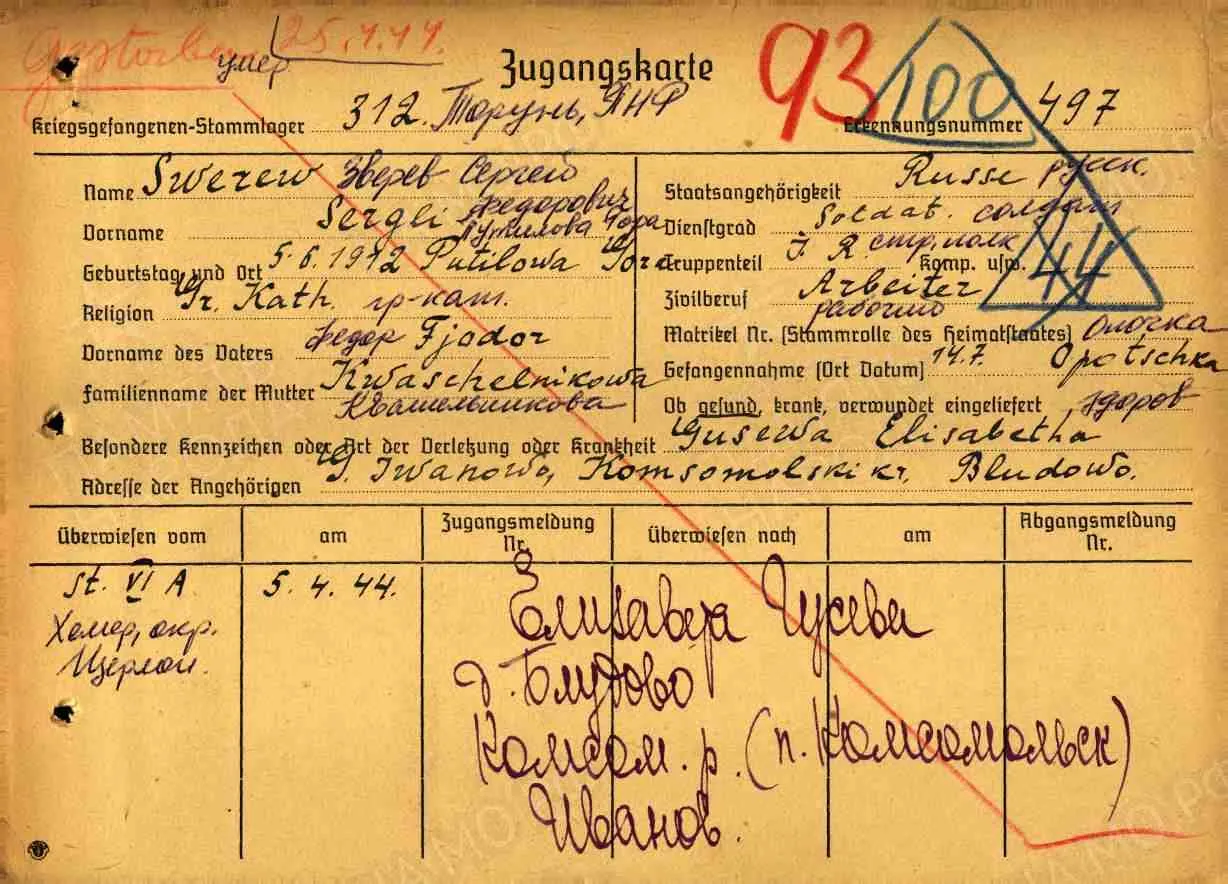 Gestorben 25.4.44.
умер
Zugangskarte
93
100
Kriegsgefangenen-Stammlager 312. Торунь, ПНР Erkennungsnummer 497
Name Swerew Зверев Сергей
Staatsangehörigkeit Russe русск.
Vorname Sergei Федорович
Dienstgrad Soldat. солдат
Путилова Гора
Geburtstag und Ort 5.6.1912 Putilowa Gora
Truppenteil I. R. стр. полк Komp. usw.
44
Religion Gr. Kath. гр-кат.
Zivilberuf Arbeiter
рабочий
Vorname des Vaters Федор Fjodor
Matrikel Nr. (Stammrolle des Heimatstaates) Опочка
Gefangennahme (Ort Datum) 14.7. Opotschka
Familienname der Mutter Kwaschelnikowa
Квашельникова
Ob gesund, krank, verwundet eingeliefert здоров
Besondere Kennzeichen oder Art der Verletzung oder Krankheit Gusewa Elisabetha
Adresse der Angehörigen G. Iwanowo, Komsomolski kr. Bludowo.
Überwiesen vom am Zugangsmeldung Nr. Überwiesen nach am Abgangsmeldung Nr.
St. VI A 5. 4. 44.
Хемер, окр.
Изерлон.
Елизавета Гусева
д. Блудово
Комсом. р. (п. Комсомольск)
Иванов.